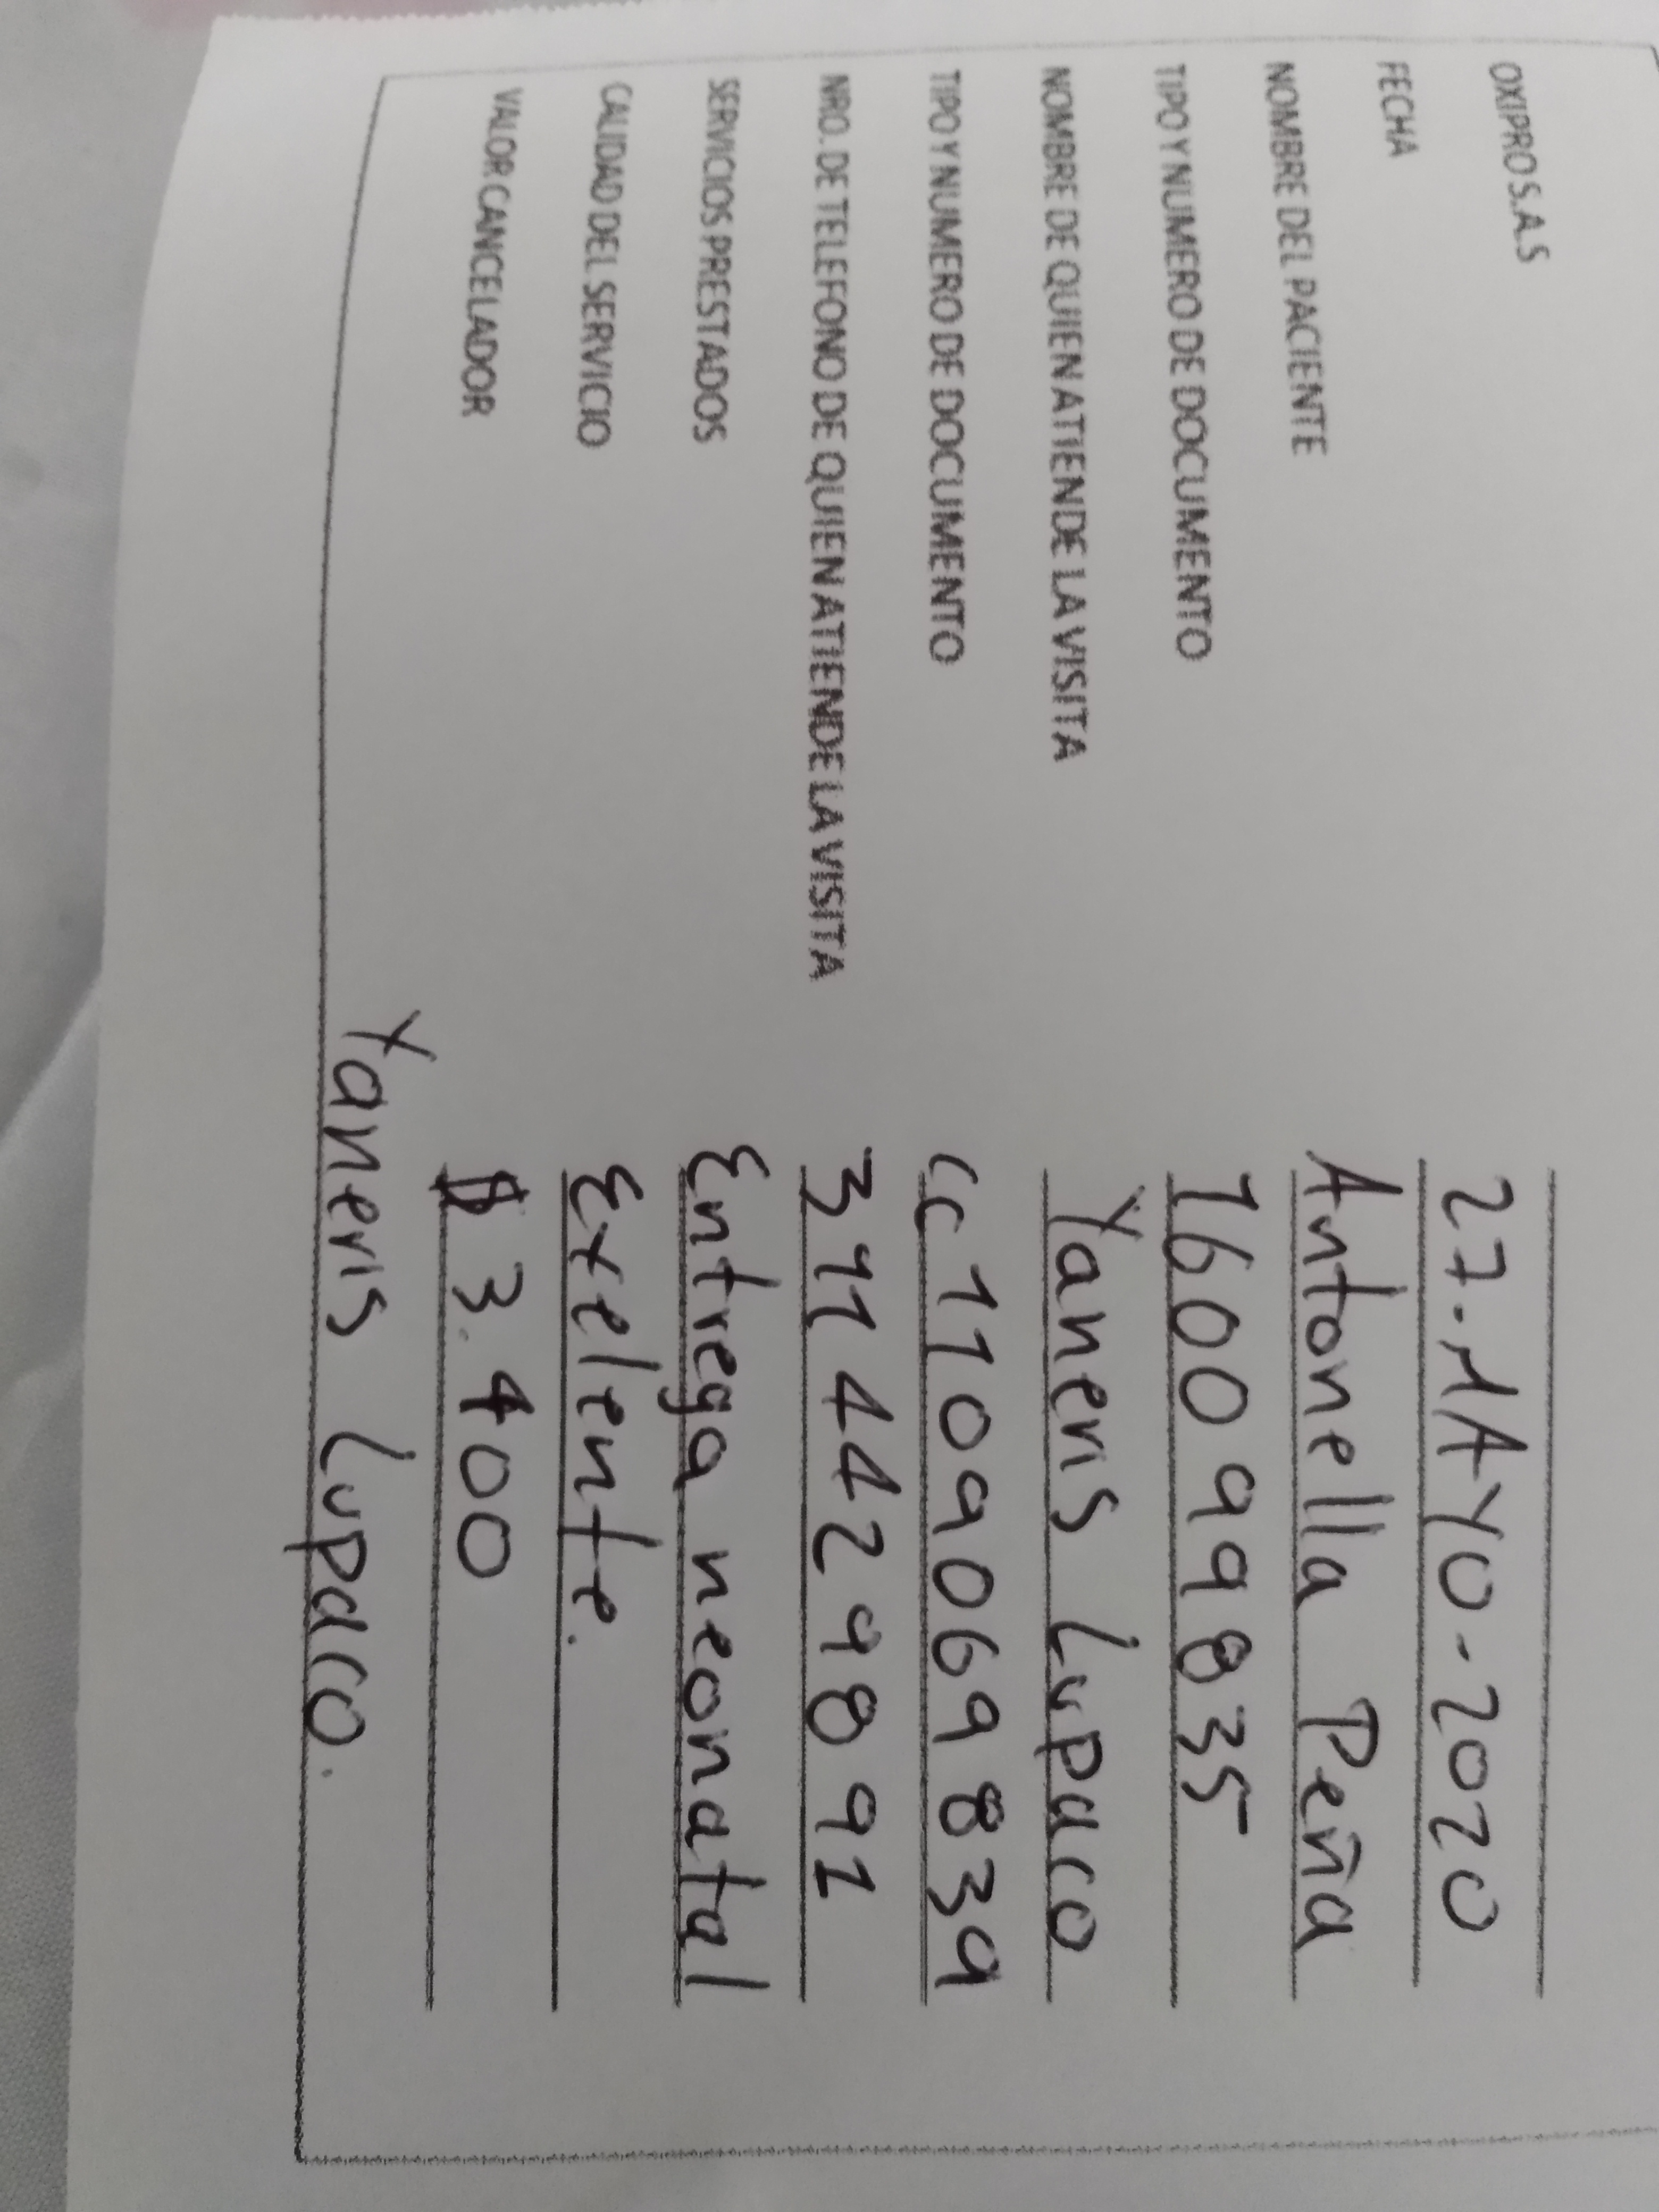 OXIPRO S.A.S
FECHA 27-MAYO-2020
NOMBRE DEL PACIENTE Antonella Peña
TIPO Y NUMERO DE DOCUMENTO 1600998835
NOMBRE DE QUIEN ATIENDE LA VISITA Yaneris Lupaco
TIPO Y NUMERO DE DOCUMENTO CC 11090698839
NRO. DE TELEFONO DE QUIEN ATIENDE LA VISITA 31144298891
SERVICIOS PRESTADOS Entrega neonatal
CALIDAD DEL SERVICIO Exelente.
VALOR CANCELADOR $ 3.400
Yaneris Lupaco.